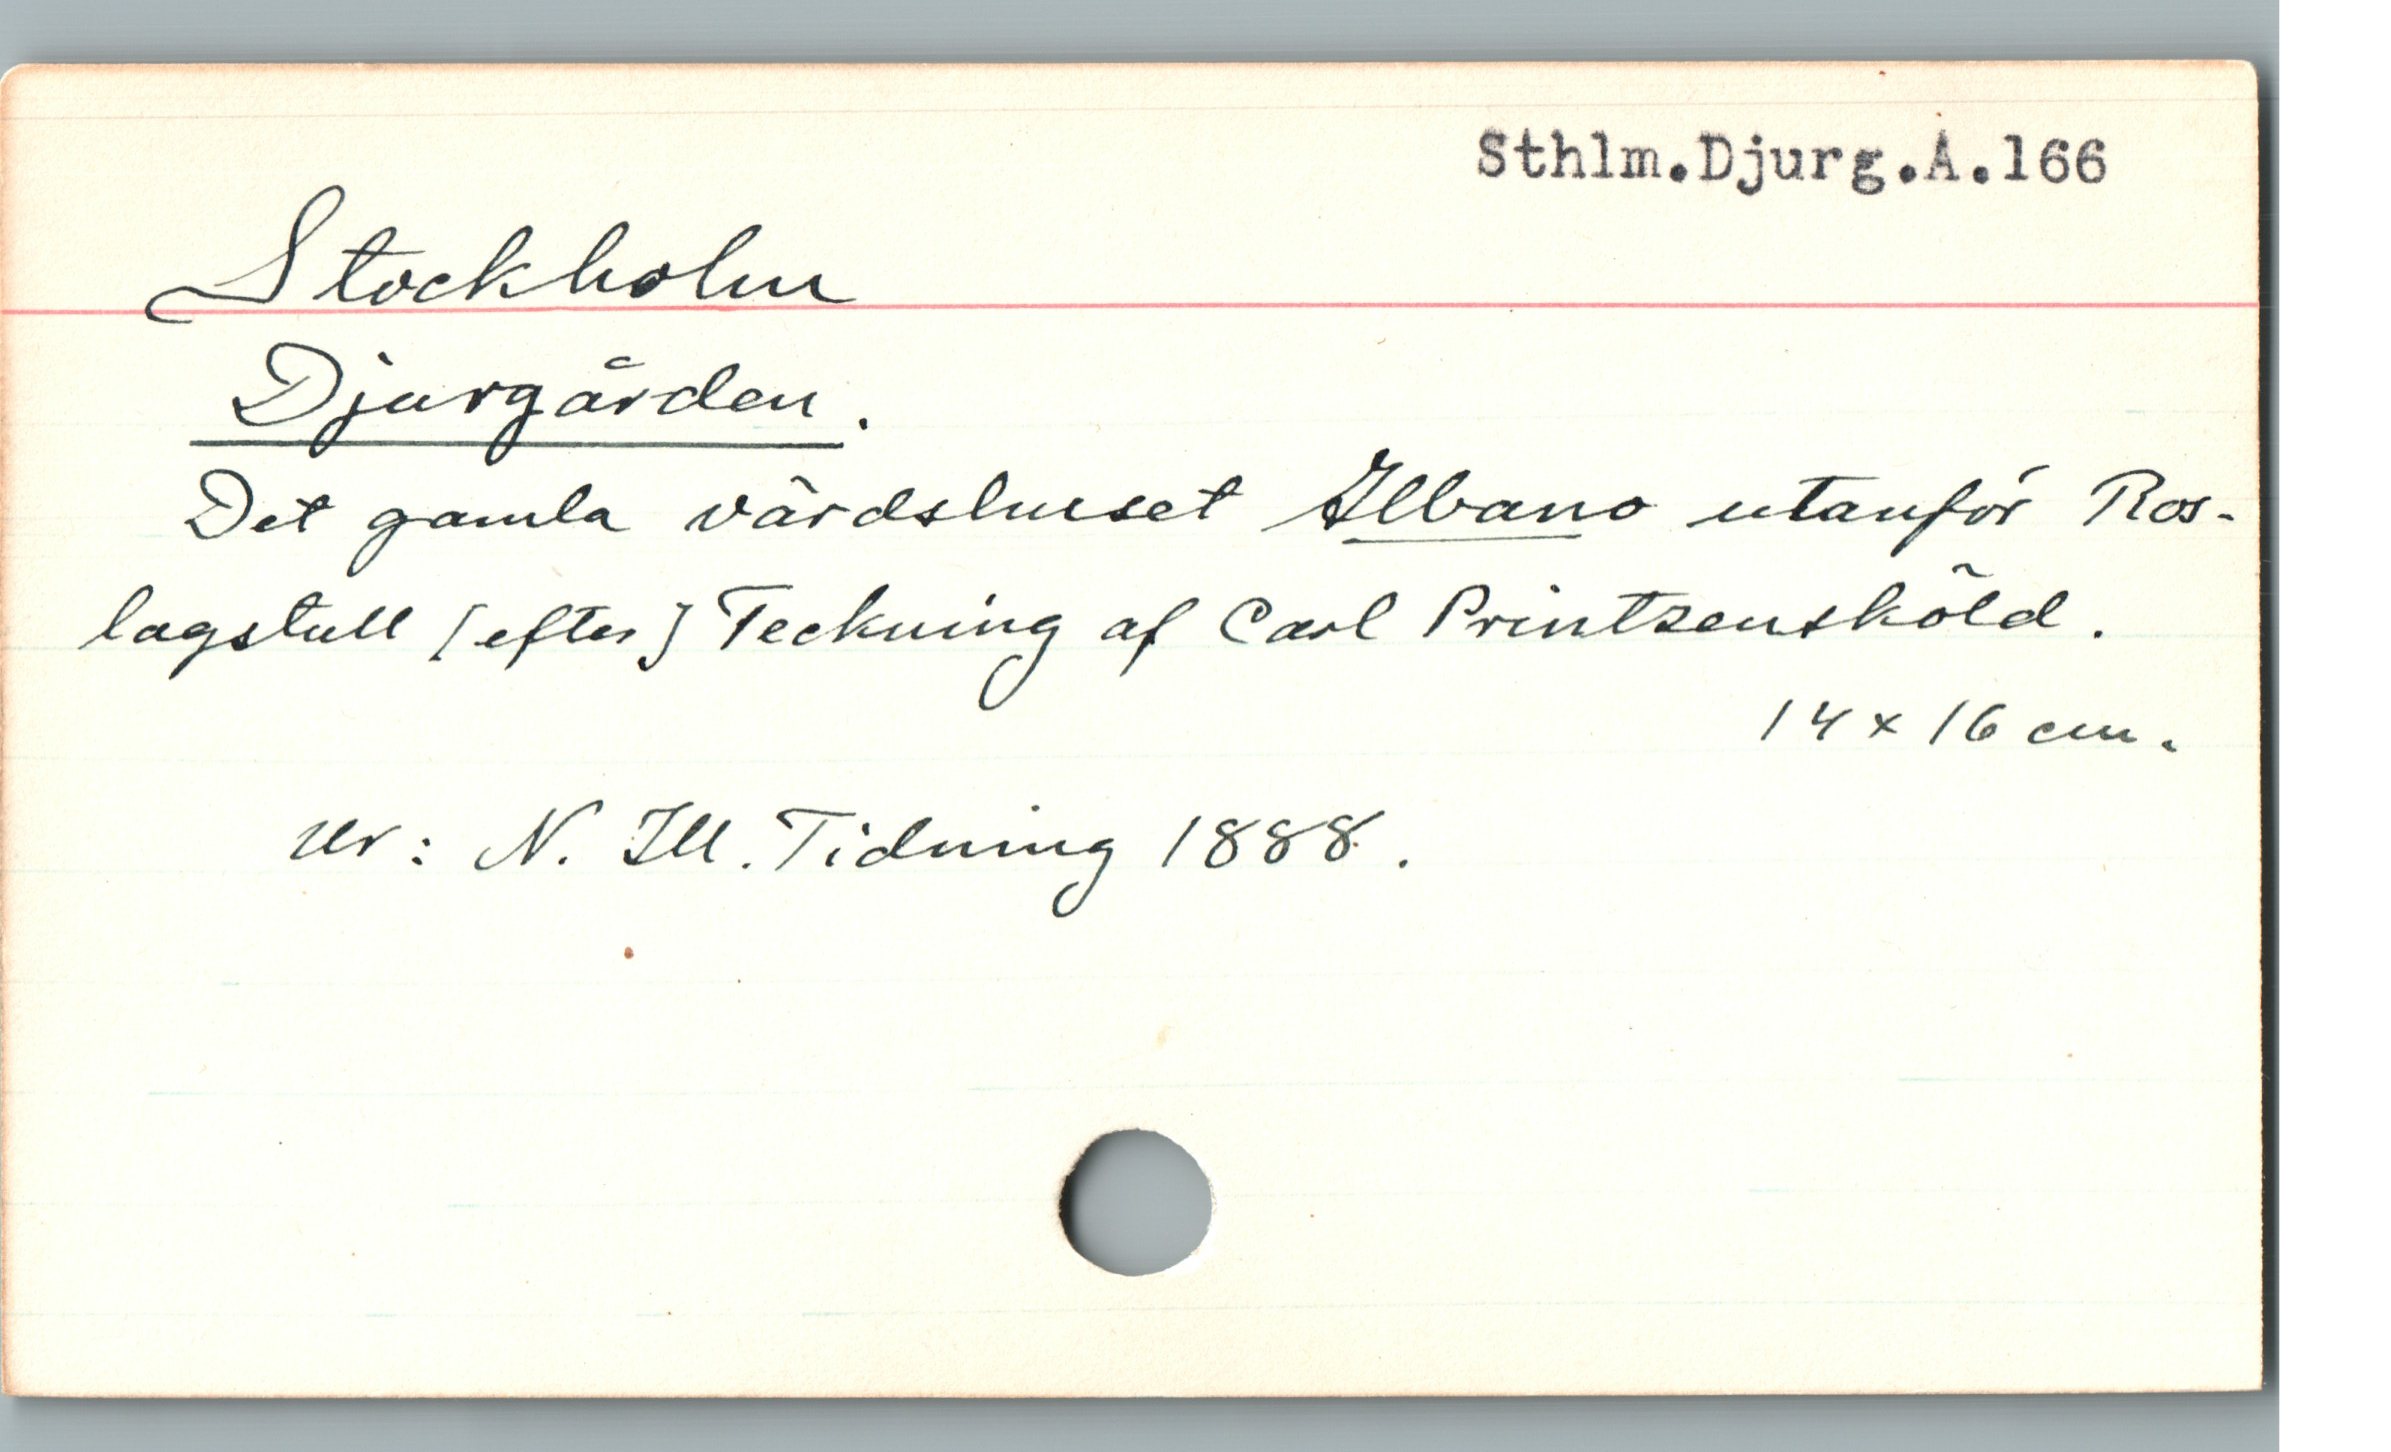 Sthlm.Djurg.A.166
Stockholm
Djurgården.
Det gamla värdshuset Albano utanför Ros-
lagstull [efter] Teckning af Carl Printzensköld.
14 x 16 cm.
Ur: N. Ill. Tidning 1888.